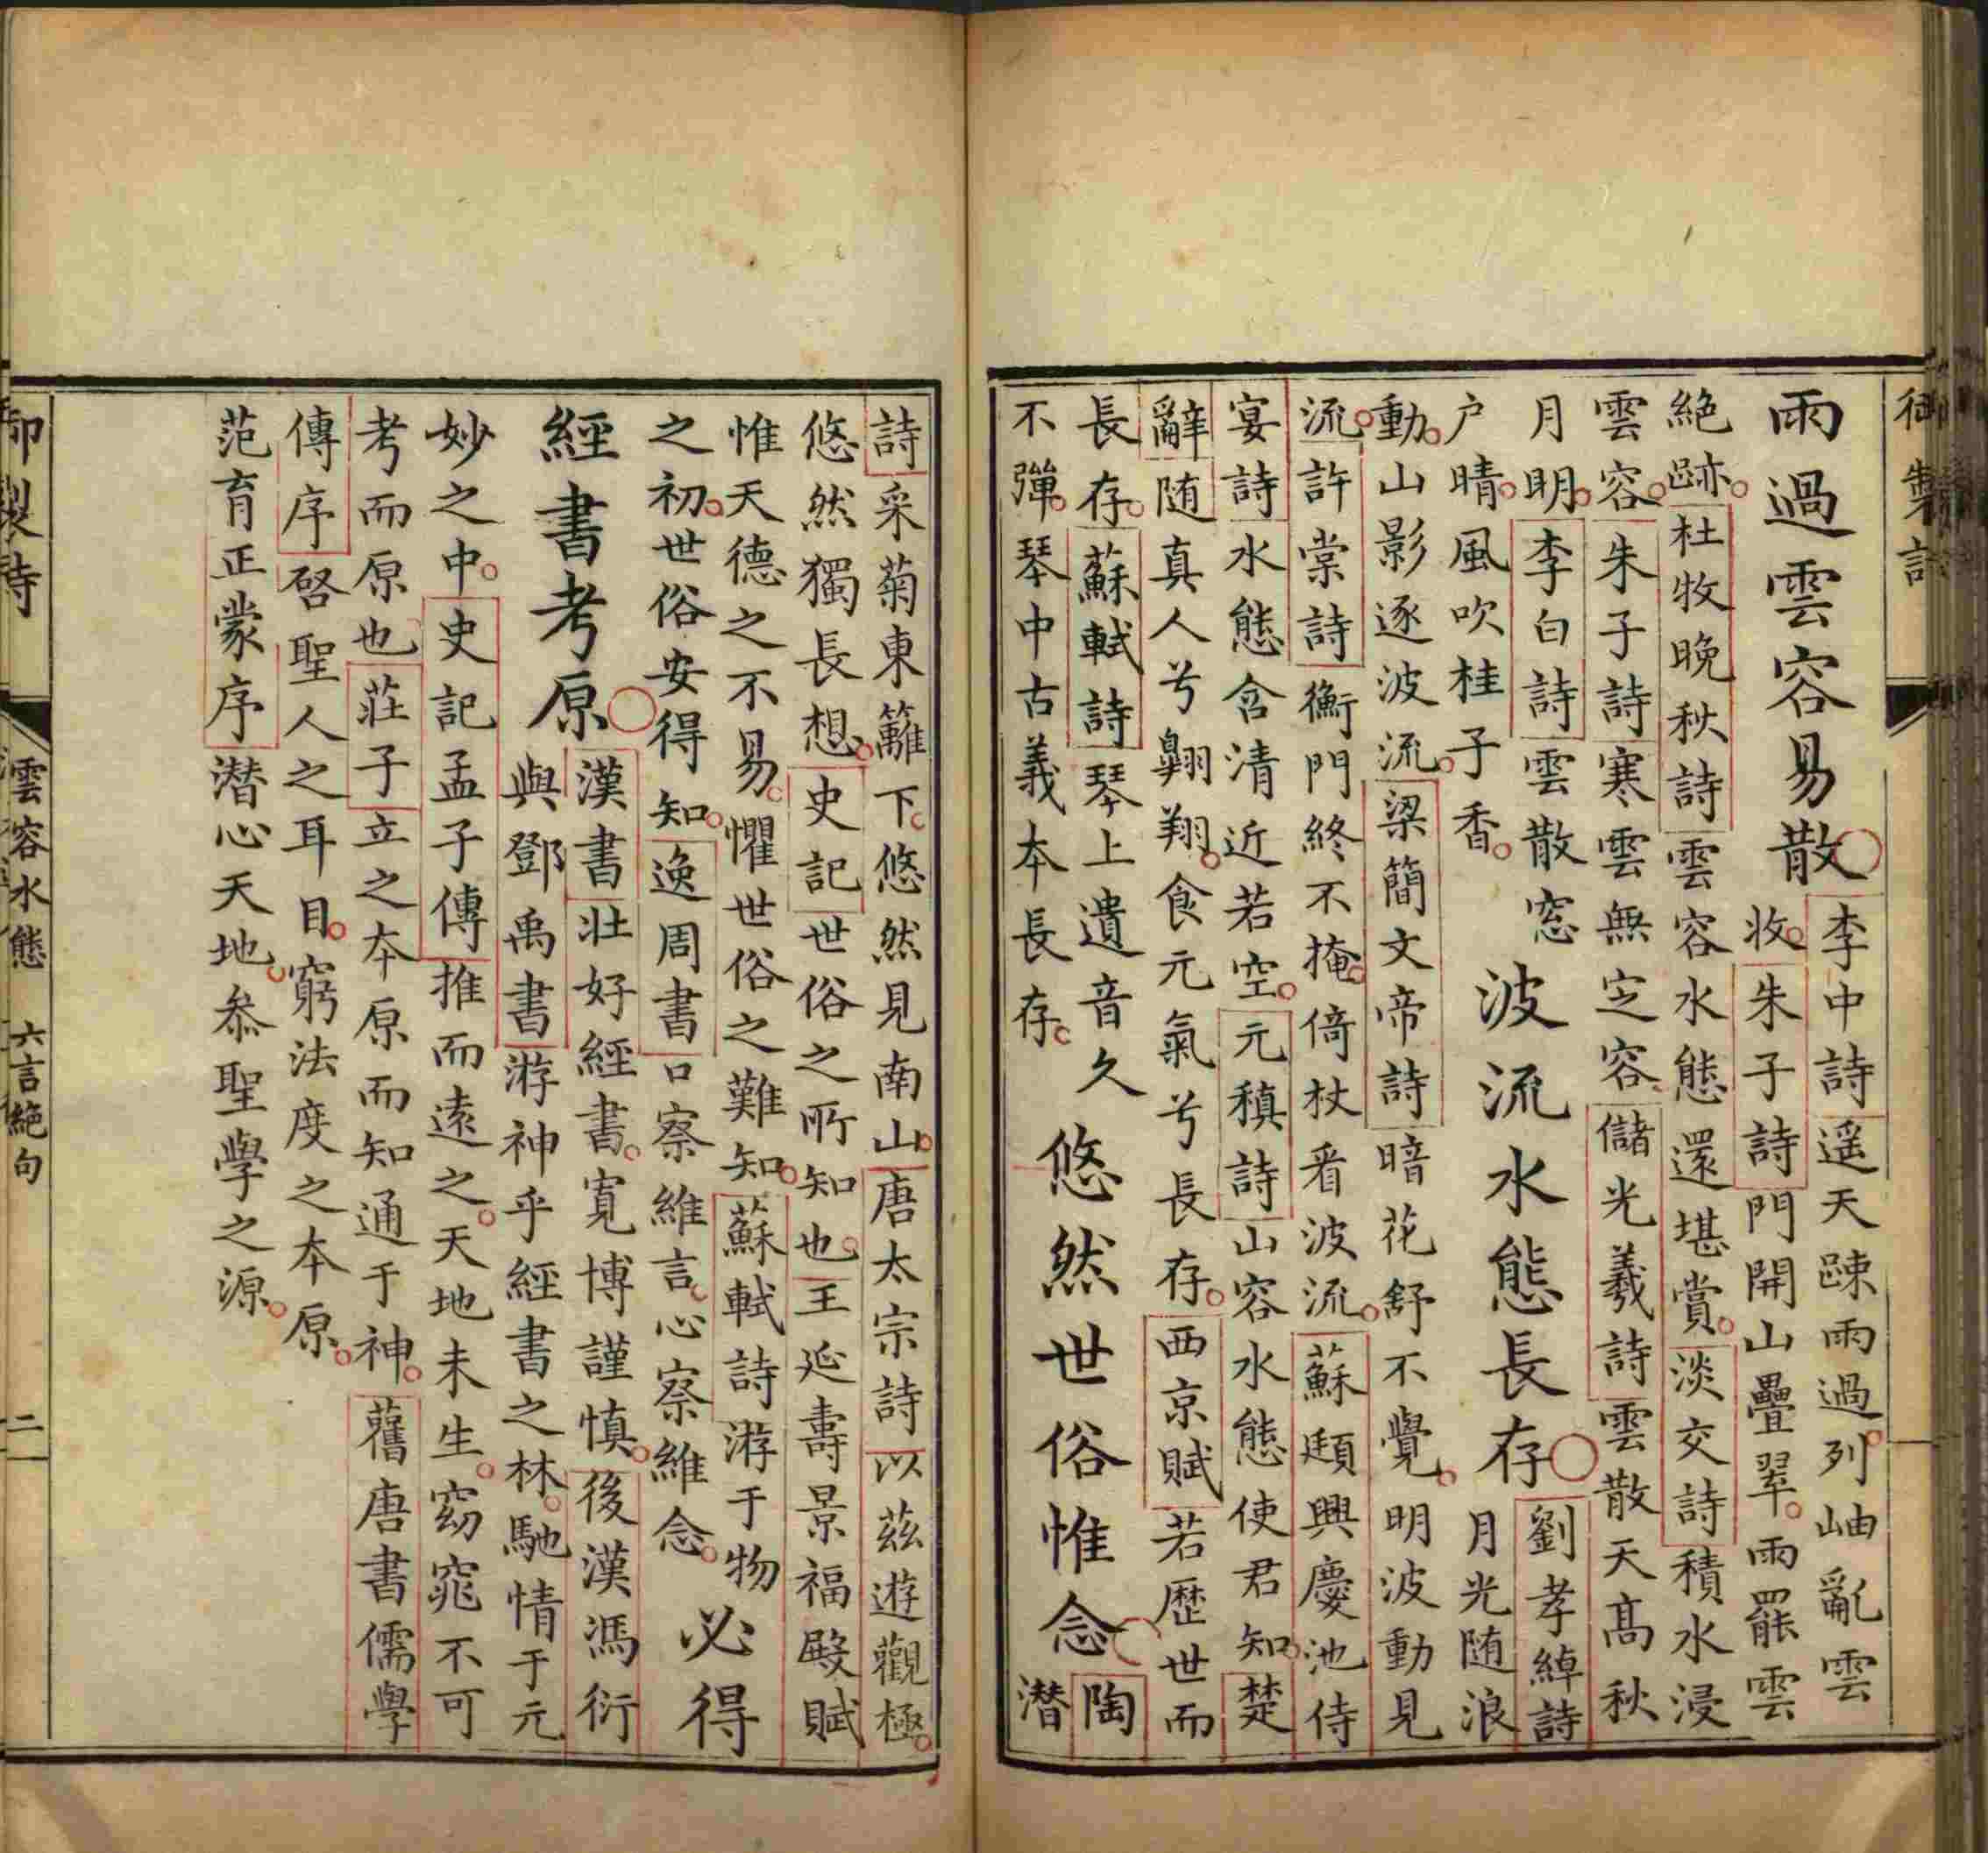 御製詩
雨過雲容易散
李中詩遥天踈雨過列岫亂雲
收朱子詩門開山疊翠雨罷雲
絶跡杜牧晚秋詩雲容水態還堪賞淡交詩積水浸
雲容朱子詩寒雲無定容儲光羲詩雲散天高秋
月明李白詩雲散窓
户晴風吹桂子香
波流水態長存
劉孝綽詩
月光随浪
動山影逐波流梁簡文帝詩暗花舒不覺明波動見
流許棠詩衡門終不掩倚杖看波流蘇頲興慶池侍
宴詩水態含清近若空元稹詩山容水態使君知楚
辭随真人兮翺翔食元氣兮長存西京賦若歷世而
長存蘇軾詩琴上遺音久
不彈琴中古義本長存
悠然世俗惟念
陶
潜
詩采菊東籬下悠然見南山唐太宗詩以兹遊觀極
悠然獨長想史記世俗之所知也王延壽景福殿賦
惟天德之不易懼世俗之難知蘇軾詩游于物
之初世俗安得知逸周書口察維言心察維念
必得
經書考原
漢書壯好經書寬博謹慎後漢馮衍
與鄧禹書游神乎經書之林馳情于元
妙之中史記孟子傳推而遠之天地未生窈窕不可
考而原也莊子立之本原而知通于神舊唐書儒學
傳序啓聖人之耳目窮法度之本原
范育正蒙序潜心天地叅聖學之源
御製詩 雲容水態 六言絶句 二